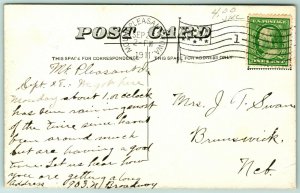 POST CARD
THIS SPACE FOR CORRESPONDENCE
THIS SPACE FOR ADDRESS ONLY
PLEASANT
SEP
1911
1
4.00
Mt Pleasant Ia
Sept
Monday about 1. o clock
has been raining most
of the time since havnt
been around much
but are having a good
time. Let us hear how
you are getting along
Address 903 N. Broadway
Mrs. J. T. Swan
Brunswick.
Neb.